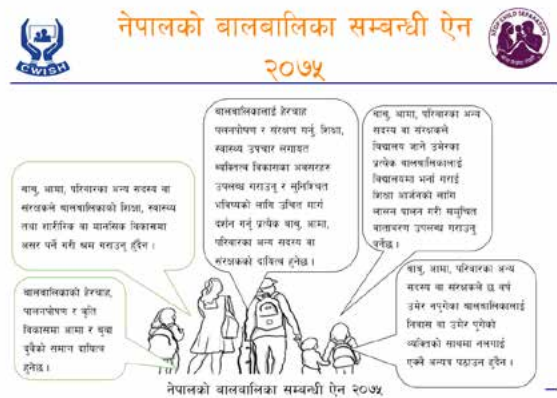 नेपालको बालबालिका सम्बन्धी ऐन
२०७५
CWISH
STOP CHILD SEPARATION
बाबु, आमा, परिवारका अन्य सदस्य वा
संरक्षकले बालबालिकाको शिक्षा, स्वास्थ्य
तथा शारीरिक वा मानसिक विकासमा
असर पर्ने गरी श्रम गराउनु हुँदैन ।
बालबालिकाको हेरचाह,
पालनपोषण र वृत्ति
विकासमा आमा र बुवा
दुवैको समान दायित्व
हुनेछ ।
बालबालिकालाई हेरचाह
पालनपोषण र संरक्षण गर्नु, शिक्षा,
स्वास्थ्य उपचार लगायत
व्यक्तित्व विकासका अवसरहरु
उपलब्ध गराउनु र सुनिश्चित
भविष्यको लागि उचित मार्ग
दर्शन गर्नु प्रत्येक बाबु, आमा,
परिवारका अन्य सदस्य वा
संरक्षकको दायित्व हुनेछ ।
बाबु, आमा, परिवारका अन्य
सदस्य वा संरक्षकले
विद्यालय जाने उमेरका
प्रत्येक बालबालिकालाई
विद्यालयमा भर्ना गराई
शिक्षा आर्जनको लागि
लालन पालन गरी समुचित
वातावरण उपलब्ध गराउनु
पर्नेछ ।
बाबु, आमा, परिवारका अन्य
सदस्य वा संरक्षकले छ वर्ष
उमेर नपुगेका बालबालिकालाई
निवास वा उमेर पुगेको
व्यक्तिको साथमा नलगाई
एक्लै अन्यत्र पठाउन हुदैन ।
नेपालको बालबालिका सम्बन्धी ऐन २०७५